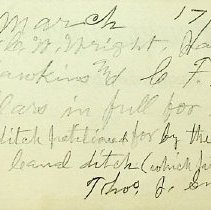 March 17
W. Wright,
Hawkins Md C. F.
lars in full for
ditch petitioned for by the
land ditch (which
Thos. J.